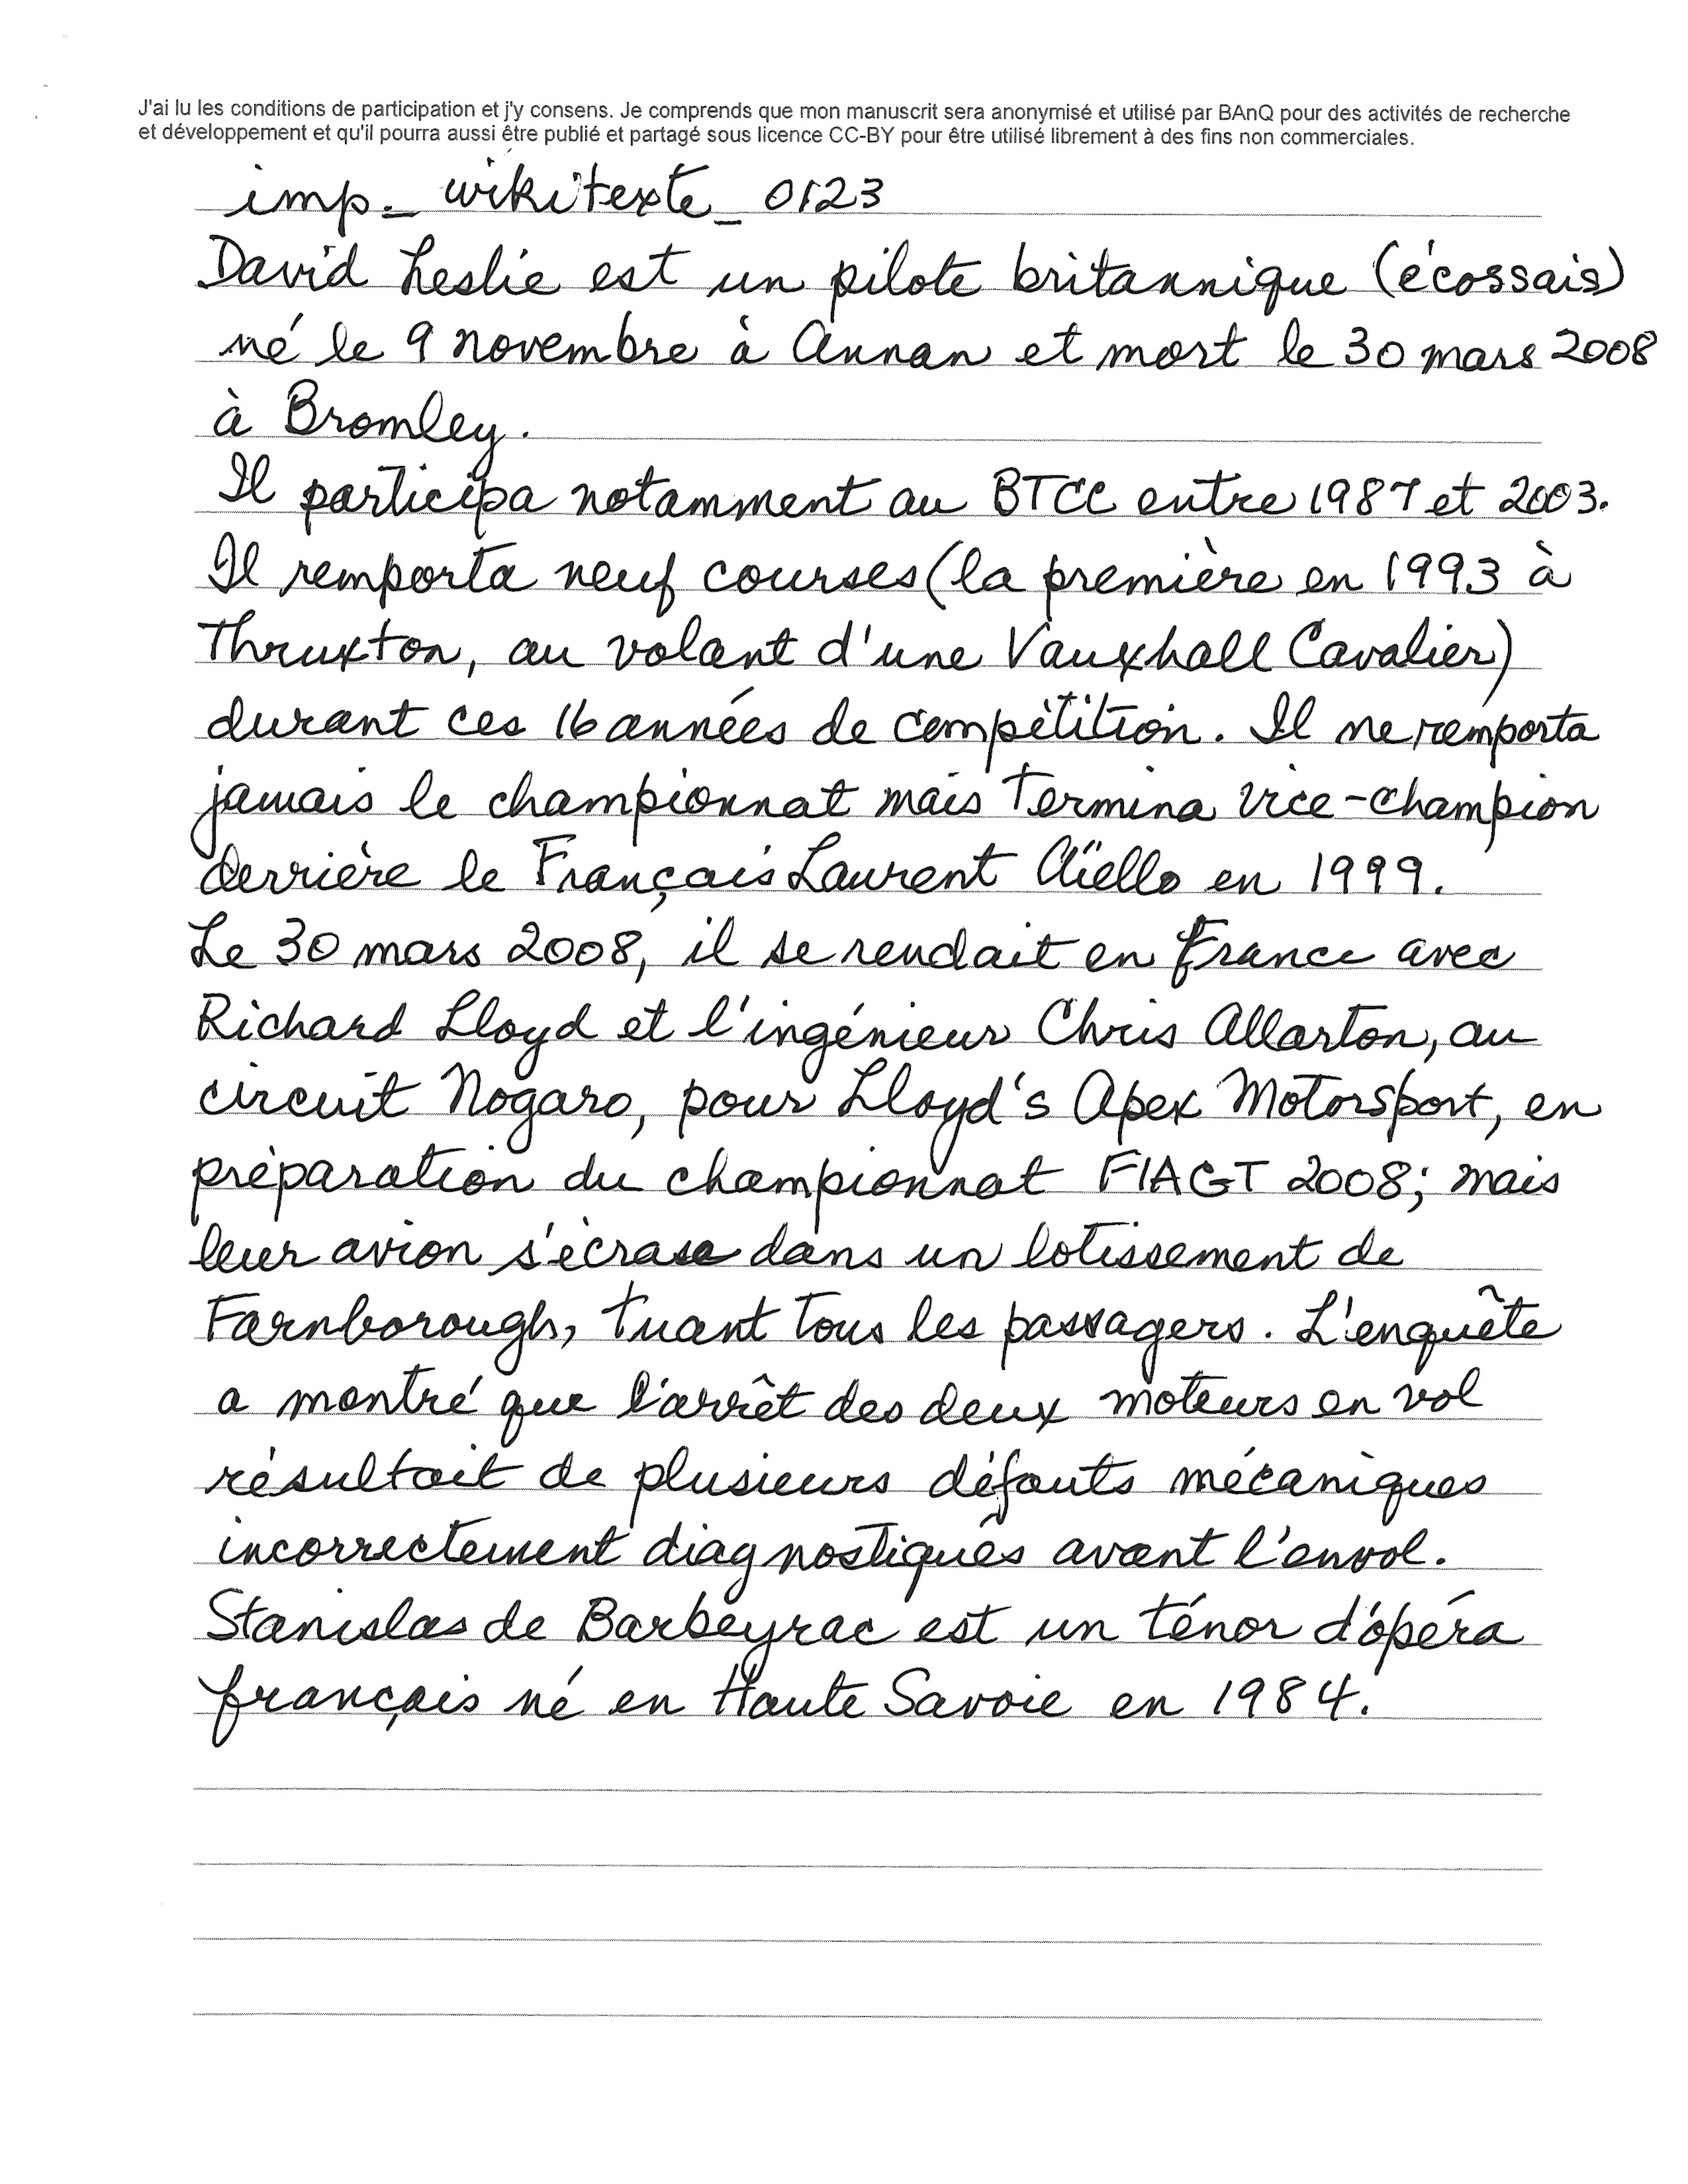 J'ai lu les conditions de participation et j'y consens. Je comprends que mon manuscrit sera anonymisé et utilisé par BAnQ pour des activités de recherche
et développement et qu'il pourra aussi être publié et partagé sous licence CC-BY pour être utilisé librement à des fins non commerciales.
imp_wikitexte_0123
David Leslie est un pilote britannique (écossais)
né le 9 novembre à Annan et mort le 30 mars 2008
à Bromley.
Il participa notamment au BTCC entre 1987 et 2003.
Il remporta neuf courses (la première en 1993 à
Thruxton, au volant d'une Vauxhall Cavalier)
durant ces 16 années de compétition. Il ne remporta
jamais le championnat mais termina vice-champion
derrière le Français Laurent Aïello en 1999.
Le 30 mars 2008, il se rendait en France avec
Richard Lloyd et l'ingénieur Chris Allarton, au
circuit Nogaro, pour Lloyd's Apex Motorsport, en
préparation du championnat FIAGT 2008; mais
leur avion s'écrase dans un lotissement de
Farnborough, tuant tous les passagers. L'enquête
a montré que l'arrêt des deux moteurs en vol
résultait de plusieurs défauts mécaniques
incorrectement diagnostiqués avant l'envol.
Stanislas de Barbeyrac est un ténor d'opéra
français né en Haute Savoie en 1984.